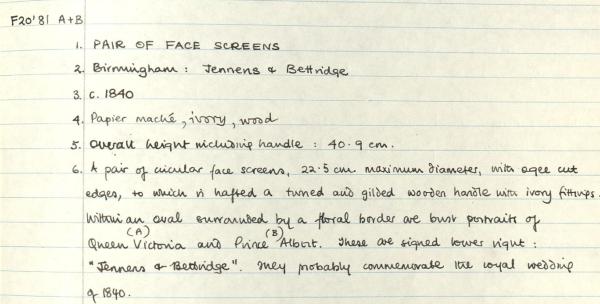 F20'81 A+B
1. PAIR OF FACE SCREENS
2. Birmingham : Jennens & Bettridge
3. c. 1840
4. Papier maché, ivory, wood
5. Overall height including handle : 40.9 cm.
6. A pair of circular face screens, 22.5 cm. maximum diameter, with ogee cut
edges, to which is hafted a turned and gilded wooden handle with ivory fittings.
Within an oval surrounded by a floral border are bust portraits of
Queen Victoria (A) and Prince Albert (B). These are signed lower right :
"Jennens & Bettridge". They probably commemorate the royal wedding
of 1840.